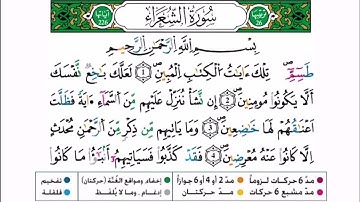 ترتيبها 26 سُورَةُ الشُّعَرَاءِ آياتها 226
بِسْمِ اللَّهِ الرَّحْمَٰنِ الرَّحِيمِ
طَسِٓمِّٓ تِلْكَ ءَايَٰتُ الْكِتَٰبِ الْمُبِينِ ① لَعَلَّكَ بَٰخِعٌ نَّفْسَكَ
أَلَّا يَكُونُوا مُومِنِينَ ② إِن نَّشَأْ نُنَزِّلْ عَلَيْهِم مِّنَ السَّمَآءِ ايَةً فَظَلَّتَ
اَعْنَٰقُهُمْ لَهَا خَٰضِعِينَ ③ وَمَا يَاتِيهِم مِّن ذِكْرٍ مِّنَ الرَّحْمَٰنِ مُحْدَثٍ
اِلَّا كَانُوا عَنْهُ مُعْرِضِينَ ④ فَقَدْ كَذَّبُوا فَسَيَاتِيهِمُ أَنۢبَٰٓؤُا مَا كَانُوا
مدّ 6 حركات لزوماً مدّ 2 أو 4 أو 6 جوازاً إخفاء ومواقع الغُنَّة (حركتان) تفخيم
مدّ مشبع 6 حركات مدّ حركتان إدغام، وما لا يُلفظ قلقلة